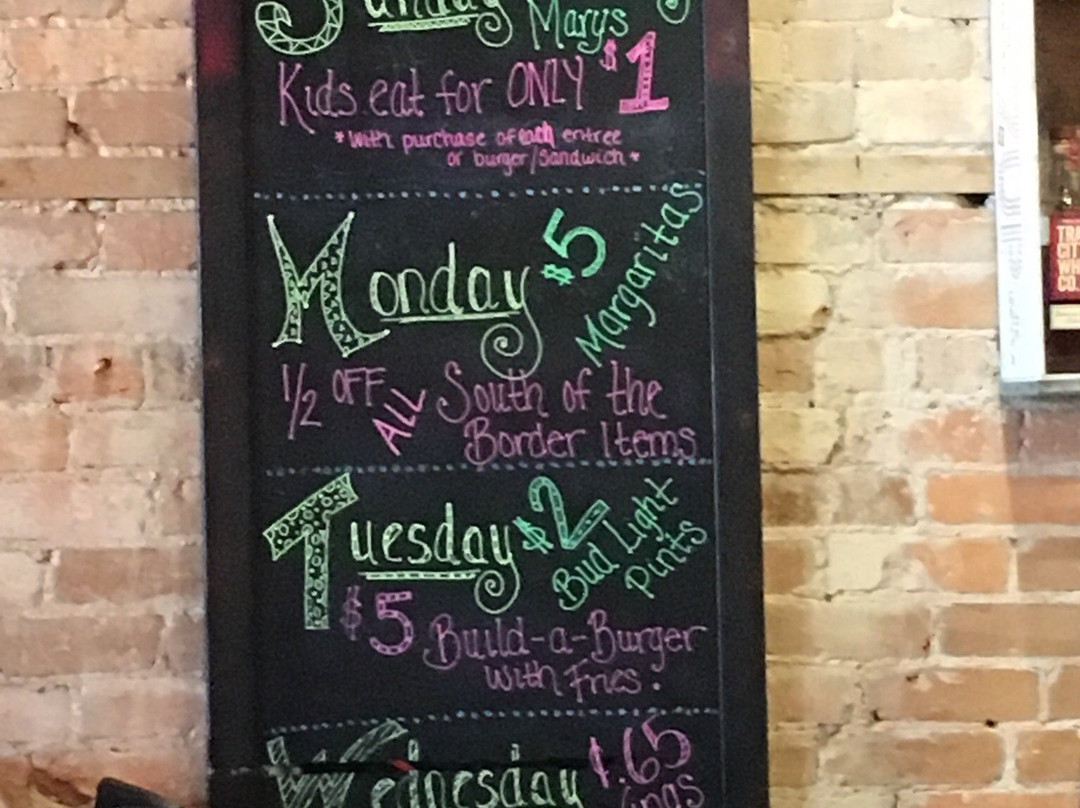 Sunday
Marys
Kids eat for ONLY $1
*with purchase of each entree
or burger/sandwich*
Monday $5
Margaritas
1/2 OFF ALL South of the
Border Items
Tuesday $2
Bud Light
Pints
$5 Build-a-Burger
with Fries.
Wednesday
TRA
CIT
WH
CO.